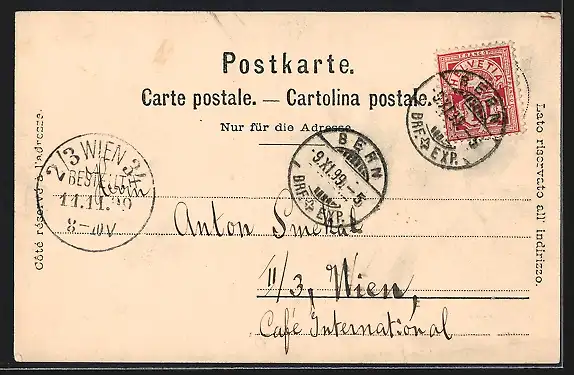 Postkarte.
Carte postale. — Cartolina postale.
Nur für die Adresse.
HELVETIA
FRANCO
BERN
BERN
9.XI.99.-5
BRF. EXP.
BRF. EXP.
2/3 WIEN 3/4
BESTELLT
11.11.99
Anton Smekal
II/3, Wien,
Café International
Côté réservé à l'adresse.
Lato riservato all' indirizzo.